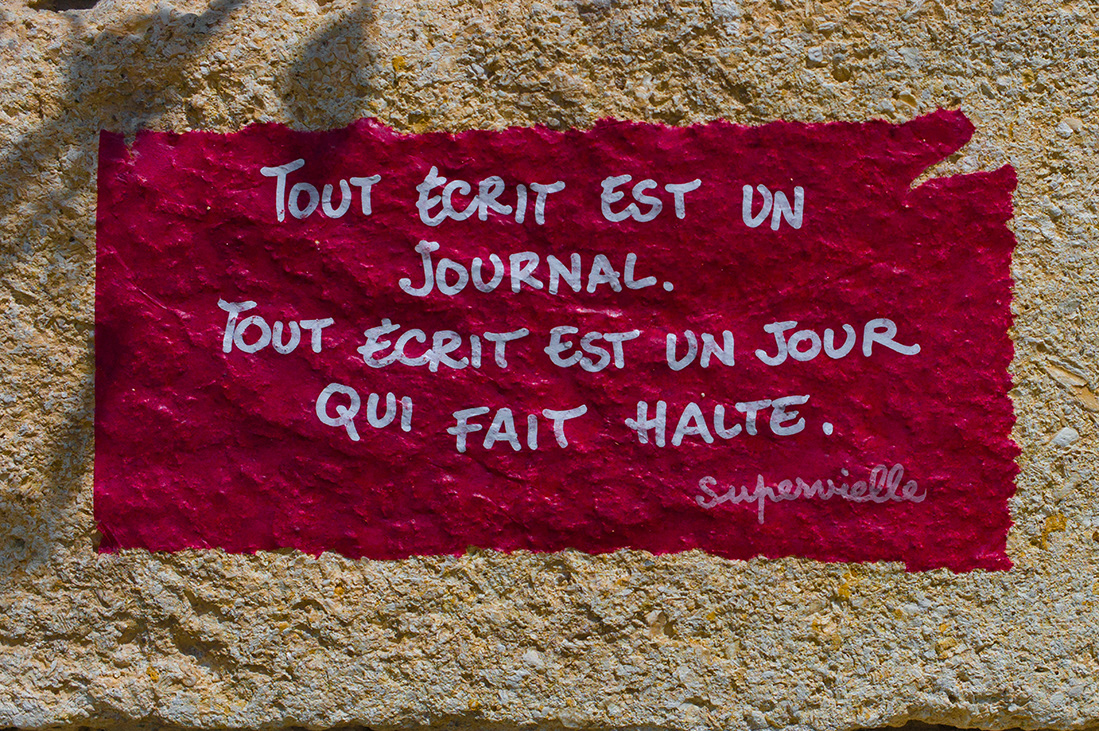 TOUT ÉCRIT EST UN
JOURNAL.
TOUT ÉCRIT EST UN JOUR
QUI FAIT HALTE.
Supervielle